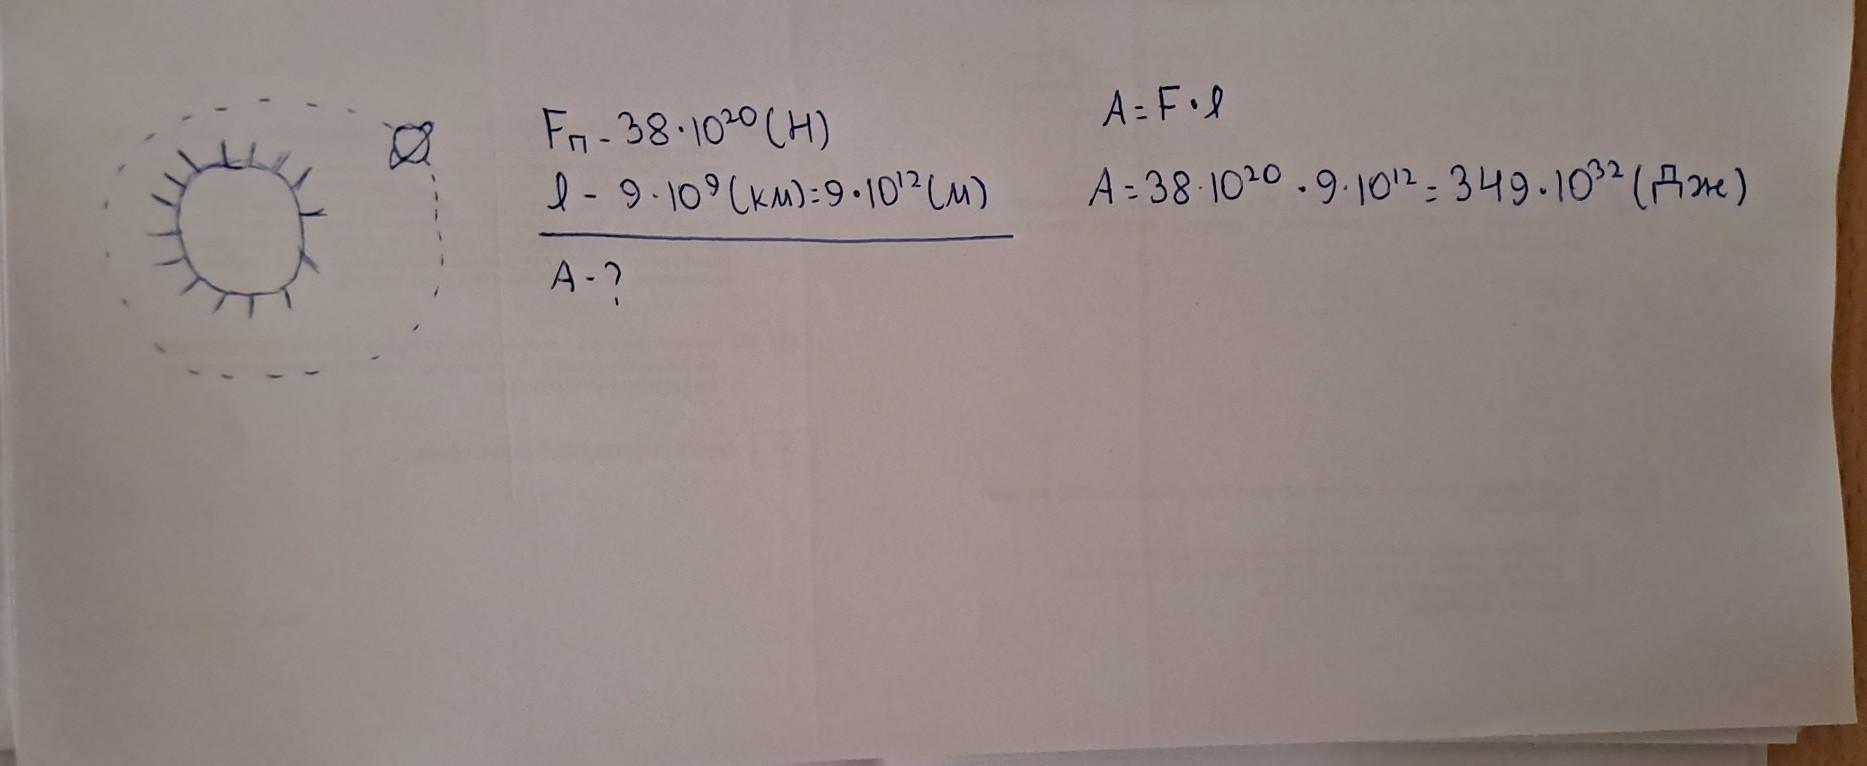 Fп - 38·10²⁰(Н)
l - 9·10⁹(км)=9·10¹²(м)
A-?
A=F·l
A=38·10²⁰·9·10¹²=349·10³²(Дж)